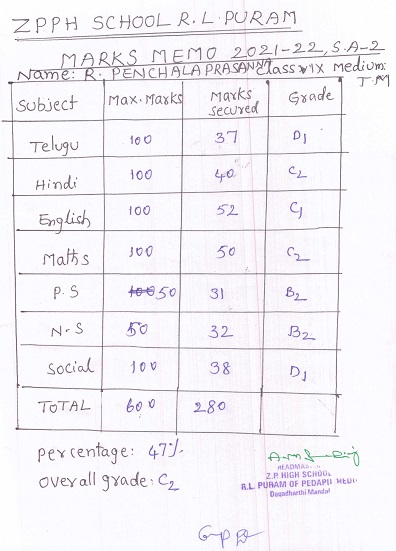 ZPPH SCHOOL R.L.PURAM
MARKS MEMO 2021-22, S.A-2
Name: R. PENCHALAPRASANNA Class: IX Medium: T.M
Subject Max.Marks Marks secured Grade
Telugu 100 37 D1
Hindi 100 40 C2
English 100 52 C1
Maths 100 50 C2
P.S 100 50 31 B2
N.S 50 32 B2
Social 100 38 D1
TOTAL 600 280
percentage: 47%
overall grade: C2
Z.P. HIGH SCHOOL
R.L. PURAM OF PEDAPU
Dagadharthi Mandal